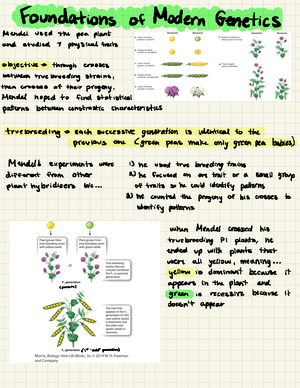 Foundations of Modern Genetics
Mendel used the pea plant
and studied 7 physical traits
objective → through crosses
between true breeding strains,
then crosses of their progeny.
Mendel hoped to find statistical
patterns between contrastic characteristics
true breeding → each successive generation is identical to the
previous one (green peas make only green pea babies)
Mendel's experiments were
different from other
plant hybridizers b/c...
1) he used true breeding trains
2) he focused on one trait or a small group
of traits so he could identify patterns
3) he counted the progeny of his crosses to
identify patterns
Plant grown from
true-breeding strain
with yellow seeds
Plant grown from
true-breeding strain
with green seeds
P₁ generation
(parents)
True-breeding
strains that are
crossed constitute
the P₁ or parental
generation.
The trait that
appears in the F₁
generation (in this
case yellow seeds)
is dominant,
and the other trait
(green seeds) is
recessive.
F₁ generation (1st filial generation)
Morris, Biology: How Life Works, 3e, © 2019 W. H. Freeman
and Company
when Mendel crossed his
true breeding P1 plants, he
ended up with plants that
were all yellow, meaning...
yellow is dominant because it
appears in the plant and
green is recessive because it
doesn't appear